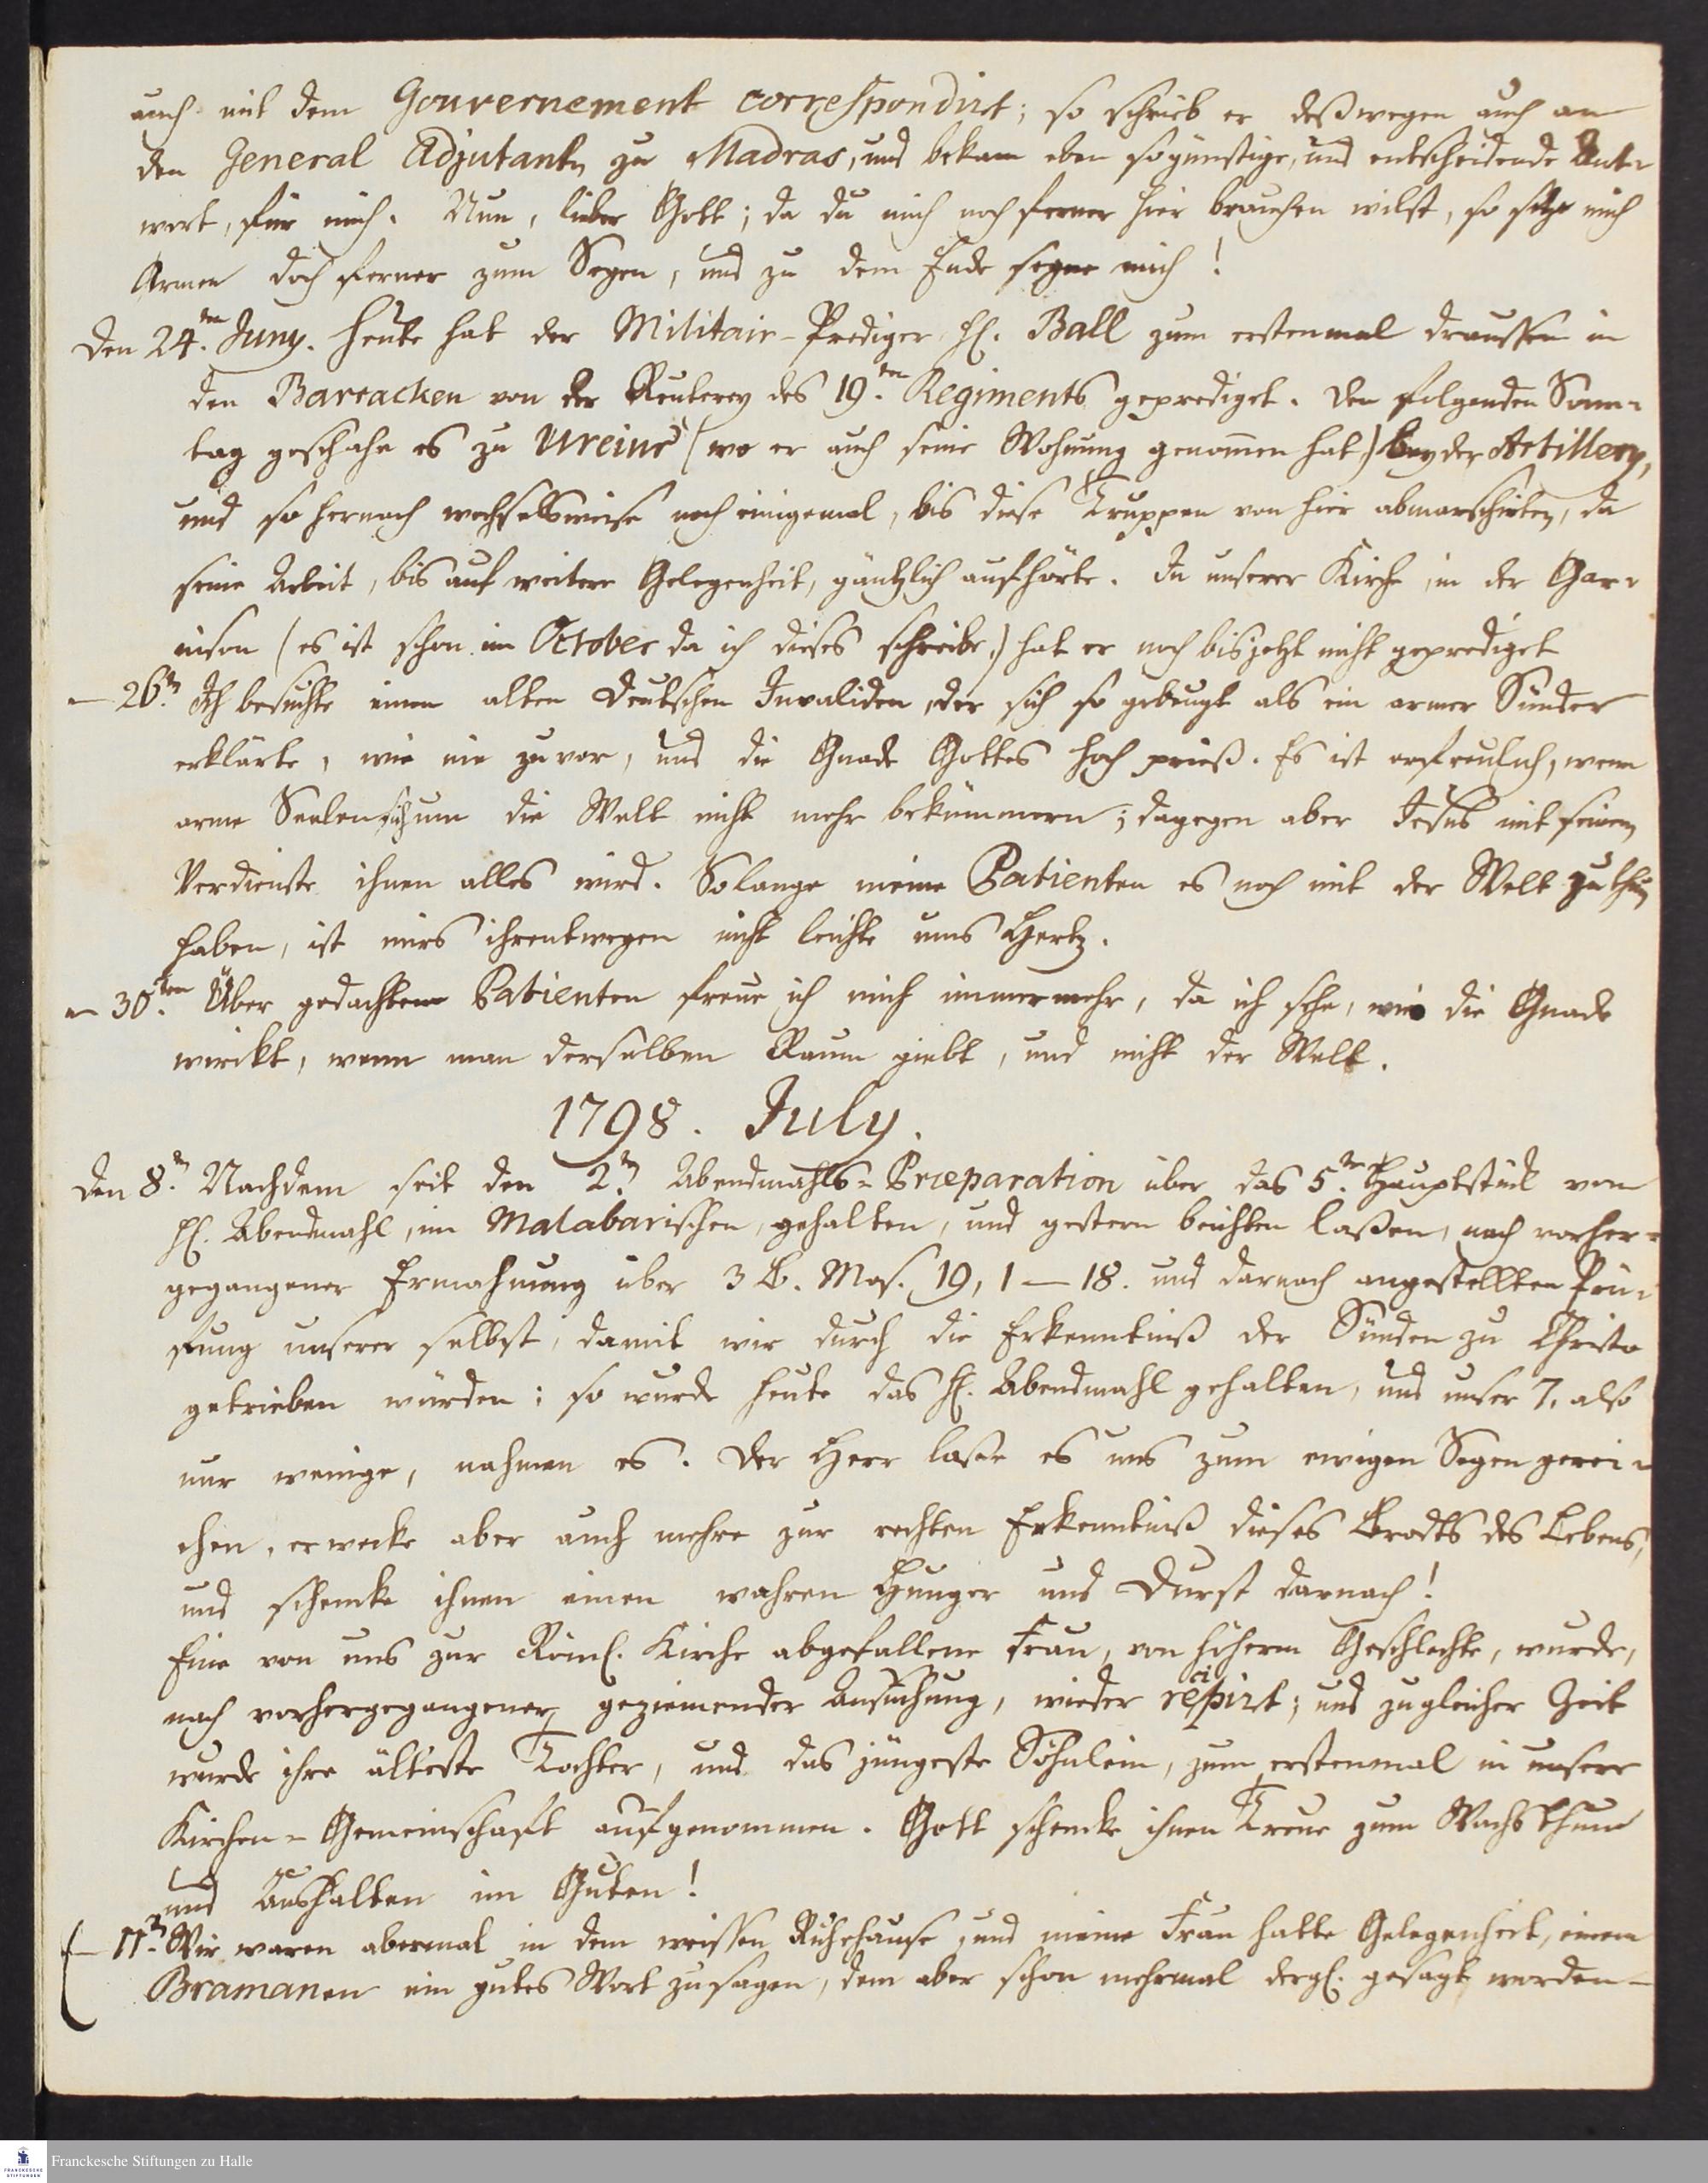 auch mit dem Gouvernement correspondirt; so schrieb er deßwegen auch an
den General Adjutanten zu Madras, und bekam eben so günstige, und entscheidende Ant-
wort, für mich. Nun, lieber Gott; da du mich noch ferner hier brauchen wilst, so setze mich
Armen doch ferner zum Segen, und zu dem Ende segne mich!
Den 24.ten Juny. Heute hat der Militair-Prediger H. Ball zum erstenmal draussen in
den Barracken von der Reuterey des 19.ten Regiments geprediget. Den folgenden Sonn-
tag geschahe es zu Ureiur (wo er auch seine Wohnung genom̅en hat) bey der Artillery,
und so hernach wechselsweise noch einigemal, bis diese Truppen von hier abmarschirten, da
seine Arbeit, bis auf weitere Gelegenheit, gäntzlich aufhörte. In unserer Kirche, in der Gar-
nison (es ist schon im October da ich dieses schreibe,) hat er noch bis jetzt nicht geprediget
— 26.ten Ich besuchte einen alten Deutschen Invaliden, der sich so gebeugt als ein armer Sünder
erklärte, wie nie zuvor, und die Gnade Gottes hoch prieß. Es ist erfreulich, wenn
arme Seelen sich um die Welt nicht mehr bekümmern; dagegen aber Jesus mit seinem
Verdienste ihnen alles wird. So lange meine Patienten es noch mit der Welt zu thun
haben, ist mirs ihrentwegen nicht leichte ums Hertz.
— 30.ten Über gedachten Patienten freue ich mich immermehr, da ich sehe, wie die Gnade
wirckt, wenn man derselben Raum giebt, und nicht der Welt.
1798. July.
Den 8.ten Nachdem seit den 2.ten Abendmahls-Præparation über das 5.te Hauptstück vom
H. Abendmahl, im Malabarischen, gehalten, und gestern beichten laßen, nach vorher-
gegangener Ermahnung über 3 B. Mos. 19, 1 — 18. und darnach angestellten Prü-
fung unserer selbst, damit wir durch die Erkenntniß der Sünden zu Christo
getrieben würden; so wurde heute das H. Abendmahl gehalten, und unser 7. also
nur wenige, nahmen es. Der Herr laße es uns zum ewigen Segen gerei-
chen, erwecke aber auch mehre zur rechten Erkenntniß dieses Brodts des Lebens,
und schencke ihnen einen wahren Hunger und Durst darnach!
Eine von uns zur Römℓ. Kirche abgefallene Frau, von höherm Geschlechte, wurde,
nach vorhergegangener geziemender Ansuchung, wieder recipirt; und zu gleicher Zeit
wurde ihre älteste Tochter, und das jüngeste Söhnlein, zum erstenmal in unsere
Kirchen-Gemeinschaft aufgenommen. Gott schencke ihnen Treue zum Wachsthum
und Aushalten im Guten!
— 11.ten Wir waren abermal in dem weissen Ruhehause, und meine Frau hatte Gelegenheit, einem
Bramanen ein gutes Wort zu sagen, dem aber schon mehrmal dergℓ. gesagt worden—
Franckesche Stiftungen zu Halle